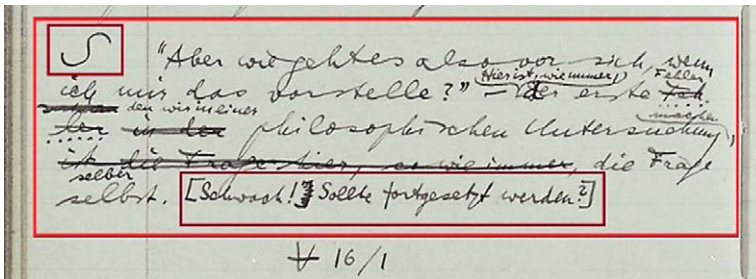 S "Aber wie geht es also vor sich, wenn
ich mir das vorstelle?" – Hier ist, wie immer, der erste Fehler
den wir in einer philosophischen Untersuchung machen,
ist die Frage hier, so wie immer, die Frage
selber
selbst. [Schwach! Sollte fortgesetzt werden?]
∀ 16/1